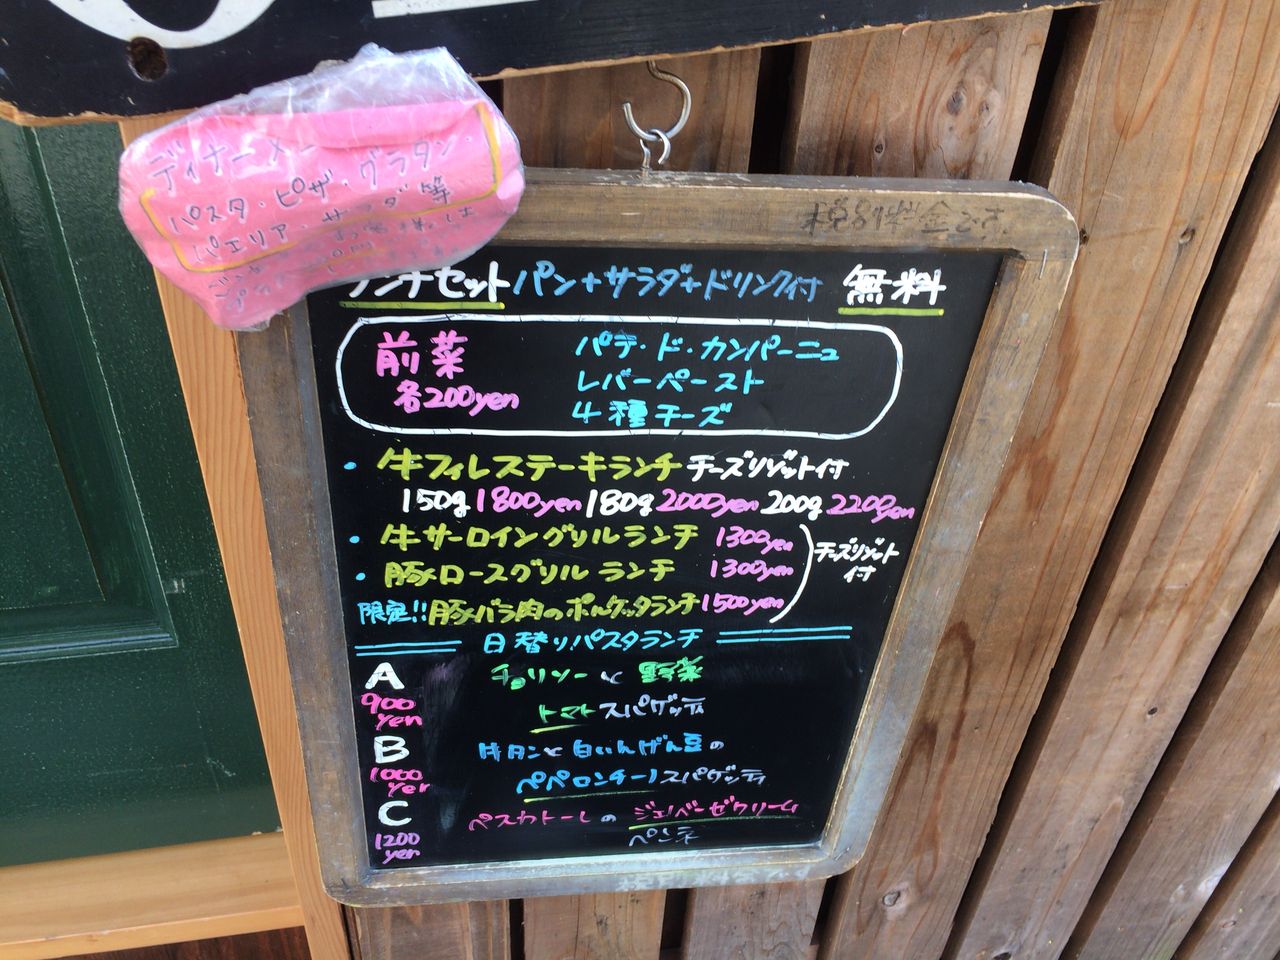 ディナーメ
パスタ・ピザ・グラタン・
パエリア・サラダ等
税別料金です。
ランチセット パン+サラダ+ドリンク付 無料
前菜
各200yen
パテ・ド・カンパーニュ
レバーペースト
4種チーズ
・牛フィレステーキランチ チーズリゾット付
150g 1800yen 180g 2000yen 200g 2200yen
・牛サーロイングリルランチ 1300yen
・豚ロースグリルランチ 1300yen
チーズリゾット付
限定!!豚バラ肉のポルケッタランチ 1500yen
日替りパスタランチ
A 900yen
チョリソーと野菜
トマトスパゲッティ
B 1000yen
牛タンと白いんげん豆の
ペペロンチーノスパゲッティ
C 1200yen
ペスカトーレのジェノベーゼクリーム
ペンネ